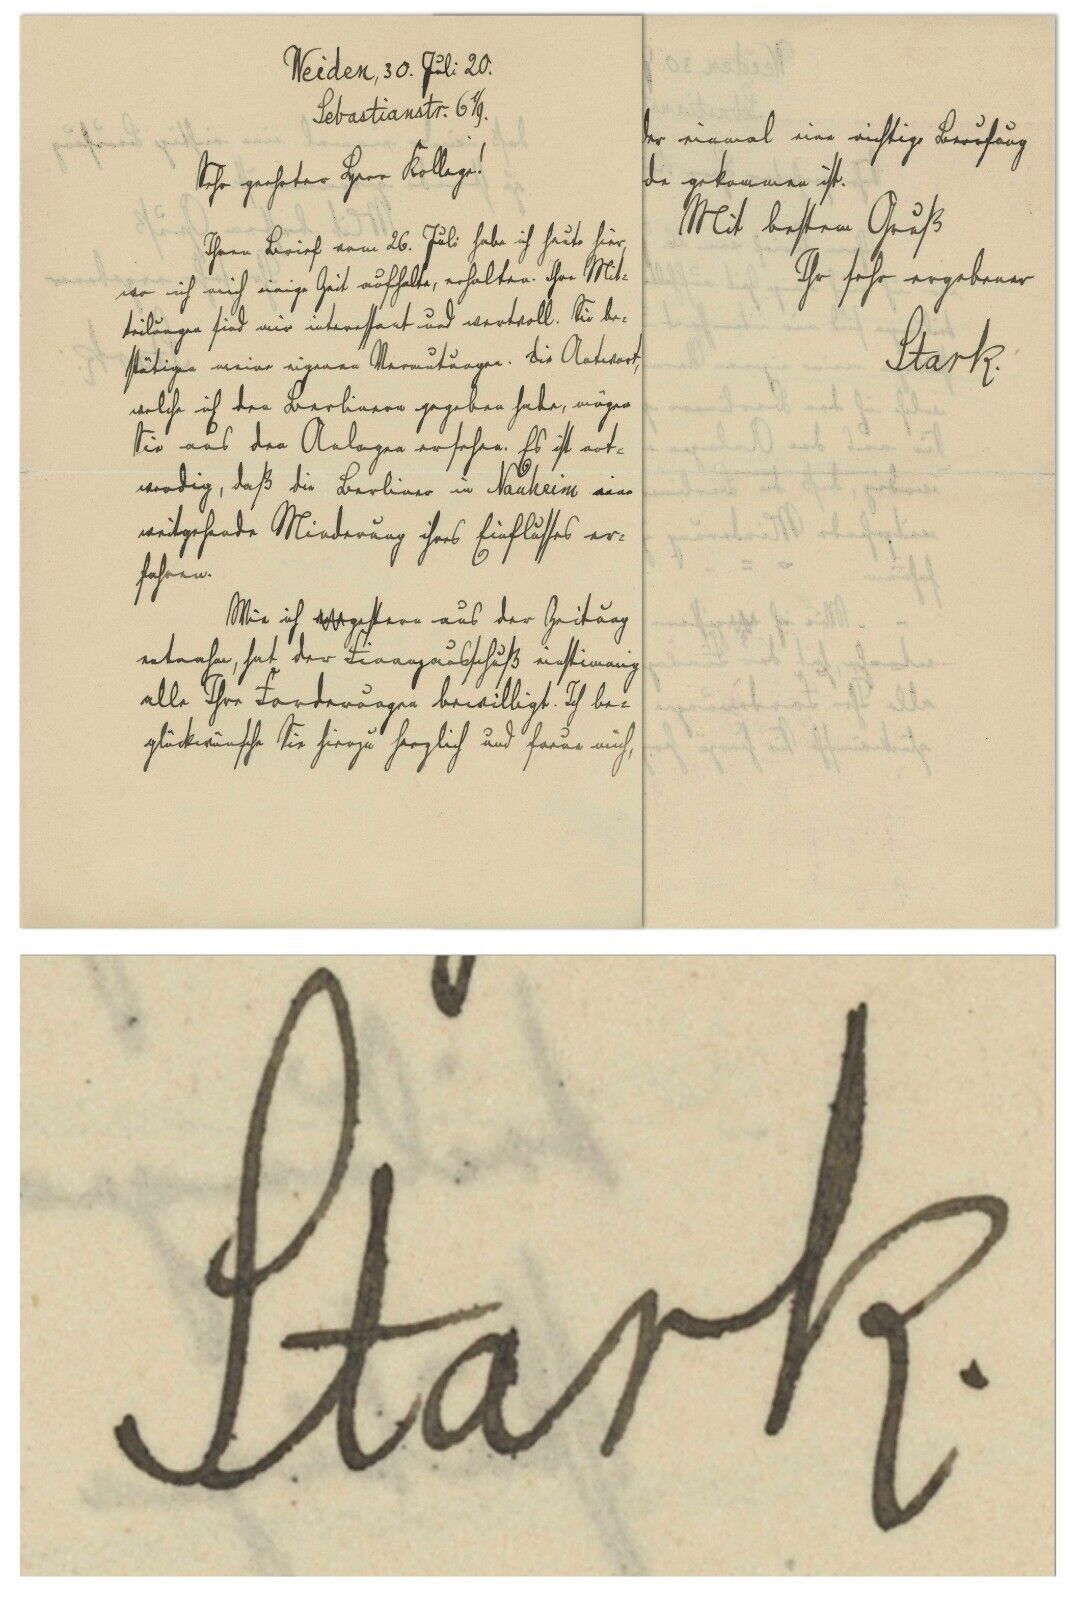 Weiden, 30. Juli 20.
Sebastianstr. 6 I/9.
Sehr geehrter Herr Kollege!
Ihren Brief vom 26. Juli habe ich heute hier,
wo ich mich einige Zeit aufhalte, erhalten. Ihre Mit-
teilungen sind mir interessant und wertvoll. Sie be-
stätigen meine eigenen Vermutungen. Die Antwort,
welche ich den Berlinern gegeben habe, mögen
Sie aus den Anlagen ersehen. Es ist not-
wendig, daß die Berliner in Nauheim eine
weitgehende Minderung ihres Einflusses er-
fahren.
Wie ich gestern aus der Zeitung
entnahm, hat der Finanzausschuß einstimmig
alle Ihre Forderungen bewilligt. Ich be-
glückwünsche Sie hierzu herzlich und freue mich,
der einmal eine richtige Berufung
de gekommen ist.
Mit bestem Gruß
Ihr sehr ergebener
Stark.
Stark.